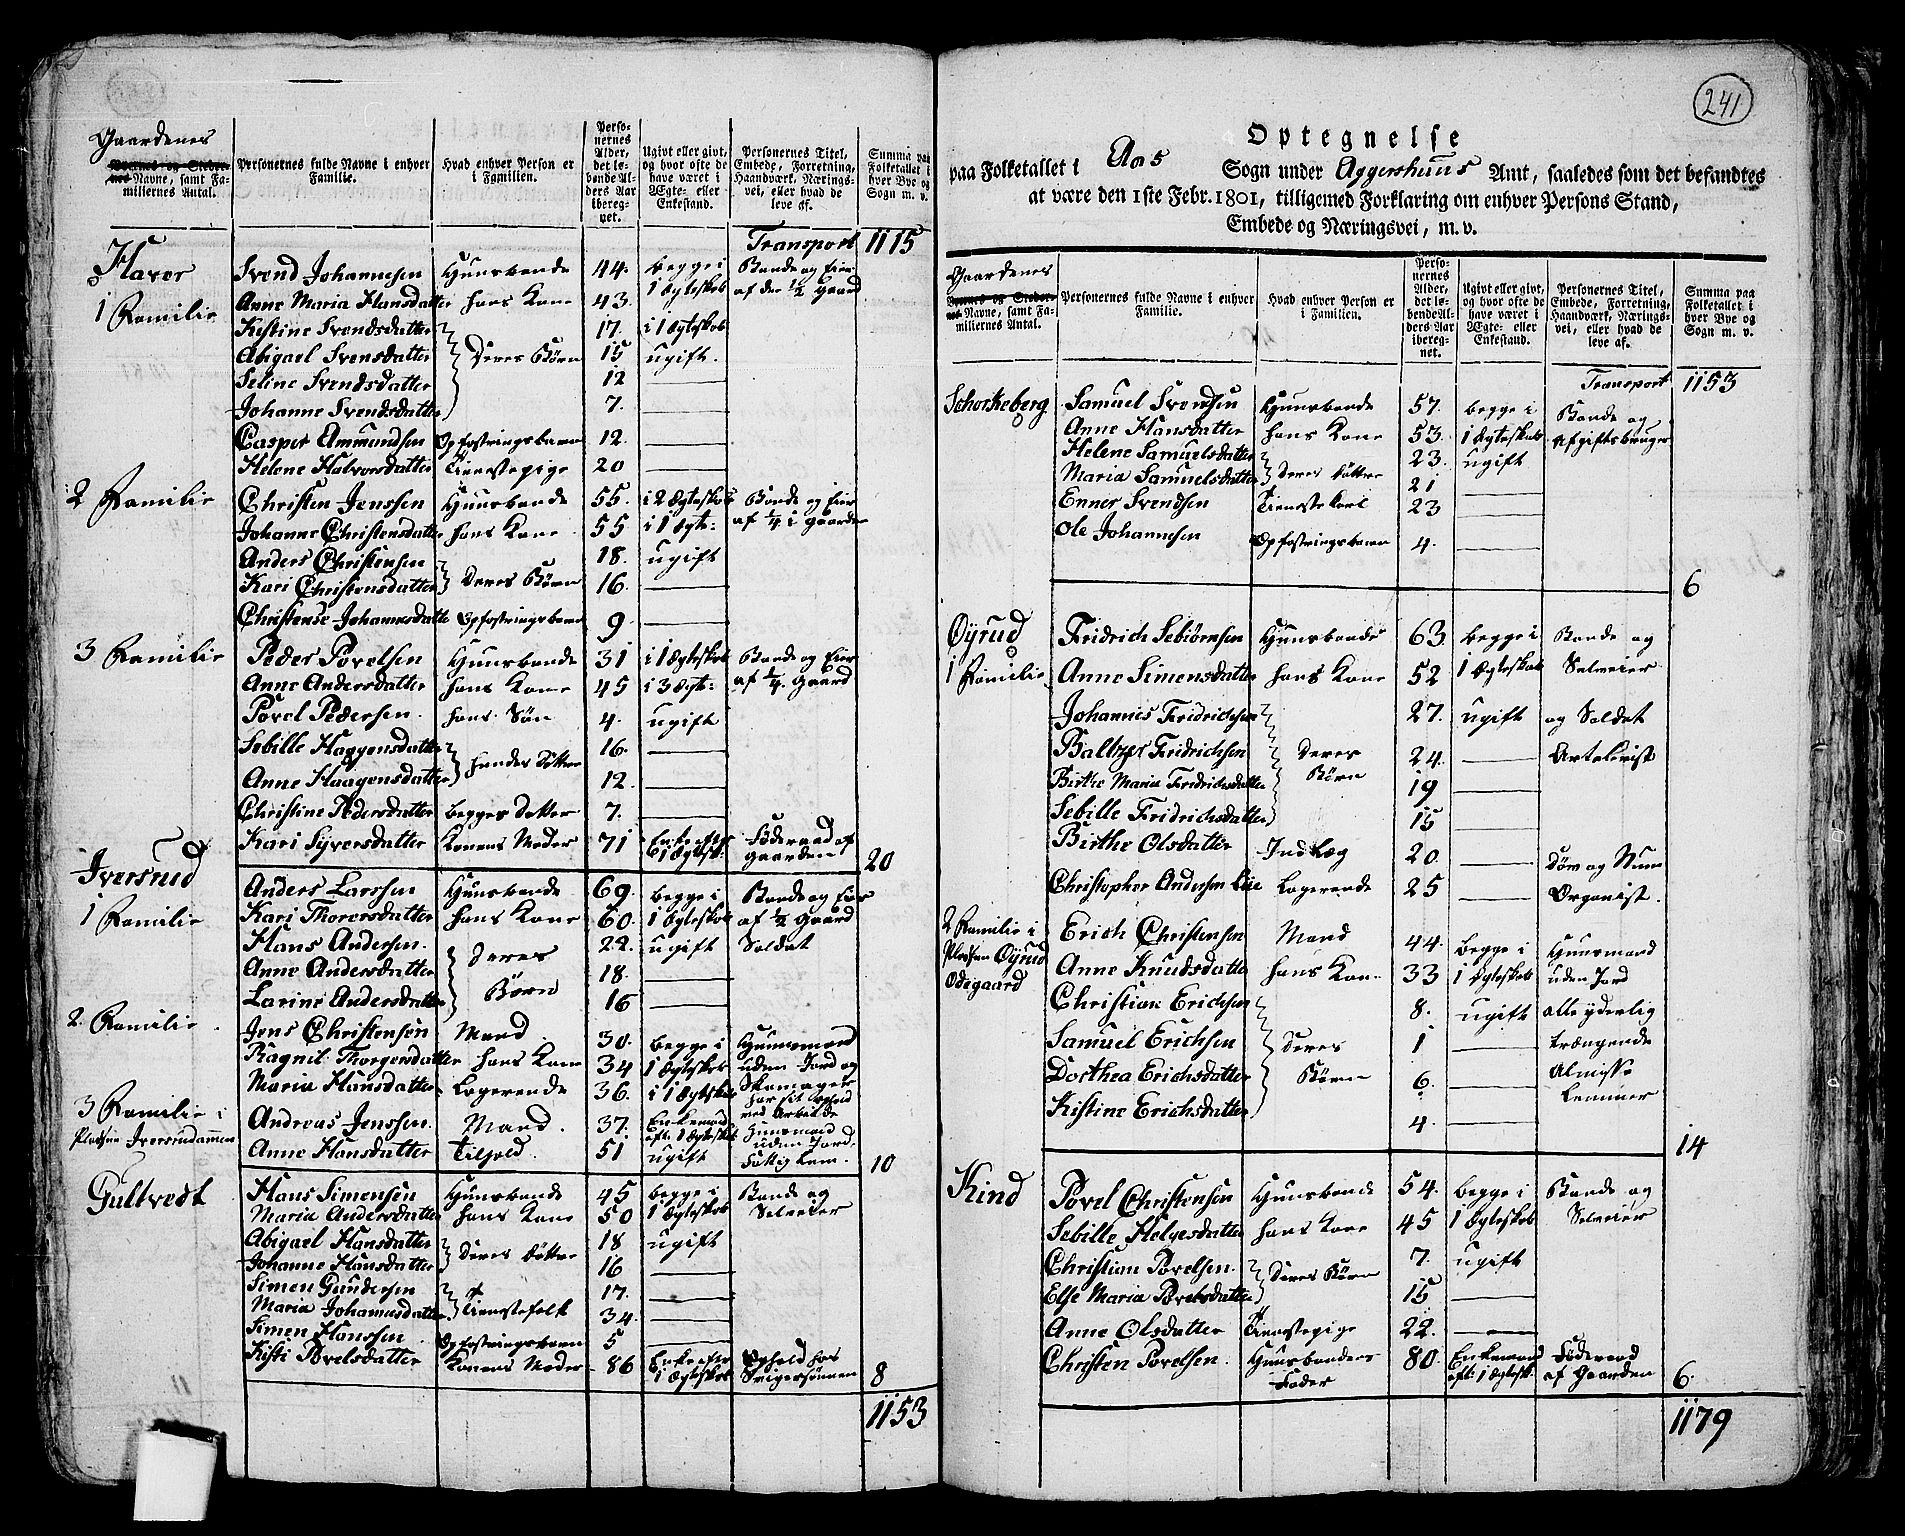 Gaardenes
Navnes og Steder-
nes Navne, samt Fa-
miliernes Antal.
Personernes fulde Navne i enhver
Familie.
Hvad enhver Person er
i Familien.
Perso-
nernes
Alder,
det le-
bende Aar
ibereg-
net.
Ugivt eller givt,
og hvor ofte de
have været i
Ægte- eller
Enkestand.
Personernes Titel,
Embede, Forretning,
Haandværk, Nærings-
vei, eller hvad de
leve af.
Summa paa
Folketallet i
hver Bye og
Sogn m. v.
Transport 1115
Haver Svend Johannesen Huusbonde 44. begge i Bonde og Eier
1 Familie Anne Maria Hansdatter hans Kone 43. 1 Ægteskab af den 1/2 Gaard
Kistine Svendsdatter 17. i 1 Ægteskab
Abigael Svensdatter Deres Børn 15 ugift.
Seline Svendsdatter 12 —
Johanne Svendsdatter 7. —
Casper Ammundsen Opfostringsbarn 12. —
Helene Halvorsdatter Tienestepige 20 —
2 Familie Christen Jenssen Huusbonde 55. i 2 Ægteskab Bonde og Eier
Johanne Christensdatter hans Kone 55 i 1 Ægt: af 1/4 i Gaarden
Anders Christensen 18. ugift
Kari Christensdatter Deres Børn 16. —
Christense Johannesdatte Opfostringsbarn 9. —
3 Familie Peder Povelsen Huusbonde 31 i 1 Ægteskab Bonde og Eier
Anne Andersdatter hans Kone 45 i 3 Ægt: af 1/4 Gaard
Povel Pedersen hans Søn 4. ugift
Sebille Haggensdatter 16. —
Anne Haagensdatter hendes Døttre 12. —
Christine Pedersdatter begges Datter 7. —
Kari Syversdatter Konens Moder 71 Enke efter Føderaad af
1 Ægtesk: Gaarden 20
Iversrud Anders Larssen Huusbonde 69. begge i Bonde og Eier
1 Familie Kari Thoresdatter hans Kone 60. 1 Ægteskab af 1/2 Gaard
Hans Andersen 22. ugift Soldat
Anne Andersdatter Deres 18. —
Larine Andersdatter Børn 16 —
2. Familie Jens Christensen Mand 30. begge i Huusmand
Ragnil Thorgersdatter hans Kone 34 1 Ægteskab uden Jord og
Maria Hansdatter Logerende 36. i 1 Ægteskab Skomager
har sit ophold
ved Arbeide
3 Familie i Andreas Jenssen Mand. 37. Enkemand Huusmand
Pladsen Iversrudammen eft: 1 Ægteskab uden Jord.
Anne Hansdatter Tilhold. 51. ugift Fattig Lem. 10
Gultvedt Hans Simensen Huusbonde 45 begge i Bonde og
Maria Andersdatter hans Kone 50 1 Ægteskab Selveier
Abigael Hansdatter 18 ugift
Johanne Hansdatter Deres Døttre 16 —
Simen Gundersen 17. —
Maria Johannesdatter Tienestefolk 34. —
Simen Hanssen Opfostringsbarn 5 —
Kisti Povelsdatter Konens Moder 86 Enke efter Ophold hos
1 Ægteskab Svigersønnen 8
1153
241
Optegnelse
paa Folketallet i Aas Sogn under Aggershuus Amt, saaledes som det befandtes
at være den 1ste Febr. 1801, tilligemed Forklaring om enhver Persons Stand,
Embede og Næringsvei, m. v.
Gaardenes
Navnes og Steder-
nes Navne, samt Fa-
miliernes Antal.
Personernes fulde Navne i enhver
Familie.
Hvad enhver Person er
i Familien.
Perso-
nernes
Alder,
det le-
bende Aar
ibereg-
net.
Ugivt eller givt,
og hvor ofte de
have været i
Ægte- eller
Enkestand.
Personernes Titel,
Embede, Forretning,
Haandværk, Nærings-
vei, eller hvad de
leve af.
Summa paa
Folketallet i
hver Bye og
Sogn m. v.
Transport 1153
Schorkeberg Samuel Svendsen Huusbonde 57. begge i Bonde og
Anne Hansdatter hans Kone 53. 1 Ægteskab Afgiftsbruger
Helene Samuelsdatter 23. ugift
Maria Samuelsdatter Deres Døttre 21 —
Enner Svendsen Tieneste Karl 23 —
Ole Johannesen Opfostringsbarn 4. —
6
Øyrud Fridrich Sebiørnsen Huusbonde 63. begge i Bonde og
1 Familie Anne Simensdatter hans Kone 52 1 Ægteskab Selveier
Johannis Fridrichsen 27. ugift og Soldat
Baltzer Fridrichsen Deres 24. — Artelerist
Birthe Maria Fridrichsdatter Børn 19 —
Sebille Fridrichsdatter 15 —
Birthe Olsdatter Indlæg 20. — Døv og Stum
Christopher Andersen Lie Logerende 25 — Organist.
2 Familie i Erich Christensen Mand 44. begge i Huusmand
Pladsen Øyrud Anne Knudsdatte hans Kone 33 1 Ægteskab uden Jord
Ødegaard Christian Erichsen 8. ugift alle yderlig
Samuel Erichsen Deres 1 — trængende
Dorthea Erichsdatter Børn 6. — Almisse
Kistine Erichsdatter 4. — Lemmer
14
Kind Povel Christensen Huusbonde 54. begge i Bonde og
Sebille Helgesdatter hans Kone 45 1 Ægteskab Selveier
Christian Povelsen. 7. ugift
Else Maria Povelsdatter Deres Børn 15 —
Anne Olsdatter Tienestepige 22. —
Christen Povelsen. Huusbondens 80. Enkemand Føderaad
Fader eft: 1 Ægtesk: af Gaarden 6.
1179